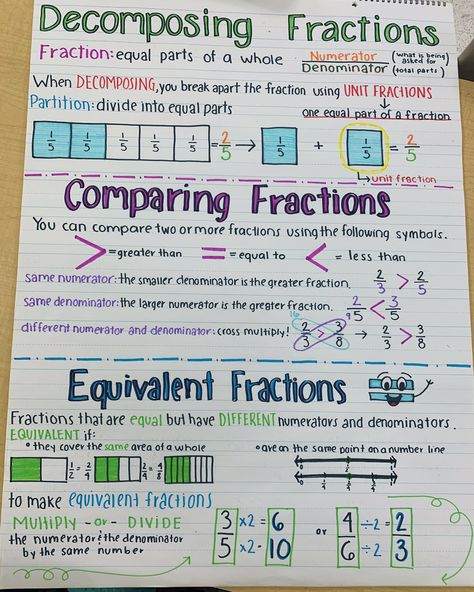 Decomposing Fractions
Fraction: equal parts of a whole Numerator (what is being asked for)
Denominator (total parts)
When DECOMPOSING, you break apart the fraction using UNIT FRACTIONS
Partition: divide into equal parts one equal part of a fraction
1/5 1/5 1/5 1/5 1/5 = 2/5 → 1/5 + 1/5 = 2/5
unit fraction
Comparing Fractions
You can compare two or more fractions using the following symbols.
> = greater than = = equal to < = less than
same numerator: the smaller denominator is the greater fraction. 2/3 > 2/5
same denominator: the larger numerator is the greater fraction. 2/5 < 3/5
different numerator and denominator: cross multiply! 16 2/3 > 3/8 9 → 2/3 > 3/8
Equivalent Fractions
Fractions that are equal but have DIFFERENT numerators and denominators.
EQUIVALENT if:
• they cover the same area of a whole • are on the same point on a number line
1/2 = 2/4 2/4 = 4/8
to make equivalent fractions
MULTIPLY -or- DIVIDE
the numerator & the denominator
by the same number
3/5 x2 = 6 x2 = 10 or 4/6 ÷2 = 2 ÷2 = 3